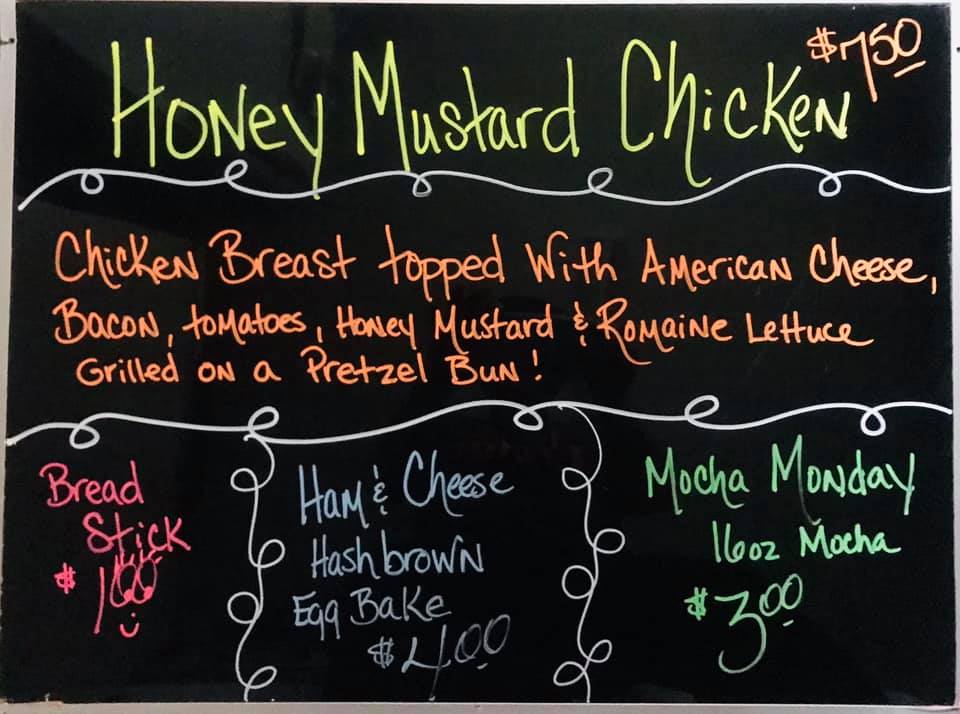 Honey Mustard Chicken $7.50
Chicken Breast topped with American Cheese,
Bacon, tomatoes, Honey Mustard & Romaine Lettuce
Grilled on a Pretzel Bun!
Bread
Stick
$1.00
Ham & Cheese
Hashbrown
Egg Bake
$4.00
Mocha Monday
16oz Mocha
$3.00